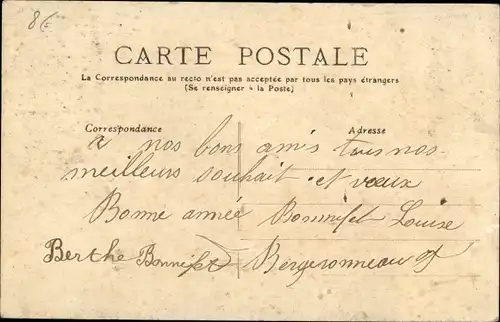 8€
CARTE POSTALE
La Correspondance au recto n'est pas acceptée par tous les pays étrangers
(Se renseigner à la Poste)
Correspondance Adresse
a nos bons amis tous nos
meilleurs souhait et vœux
Bonne année Bonnifet Louise
Berthe Bonnifet Bergeronneau